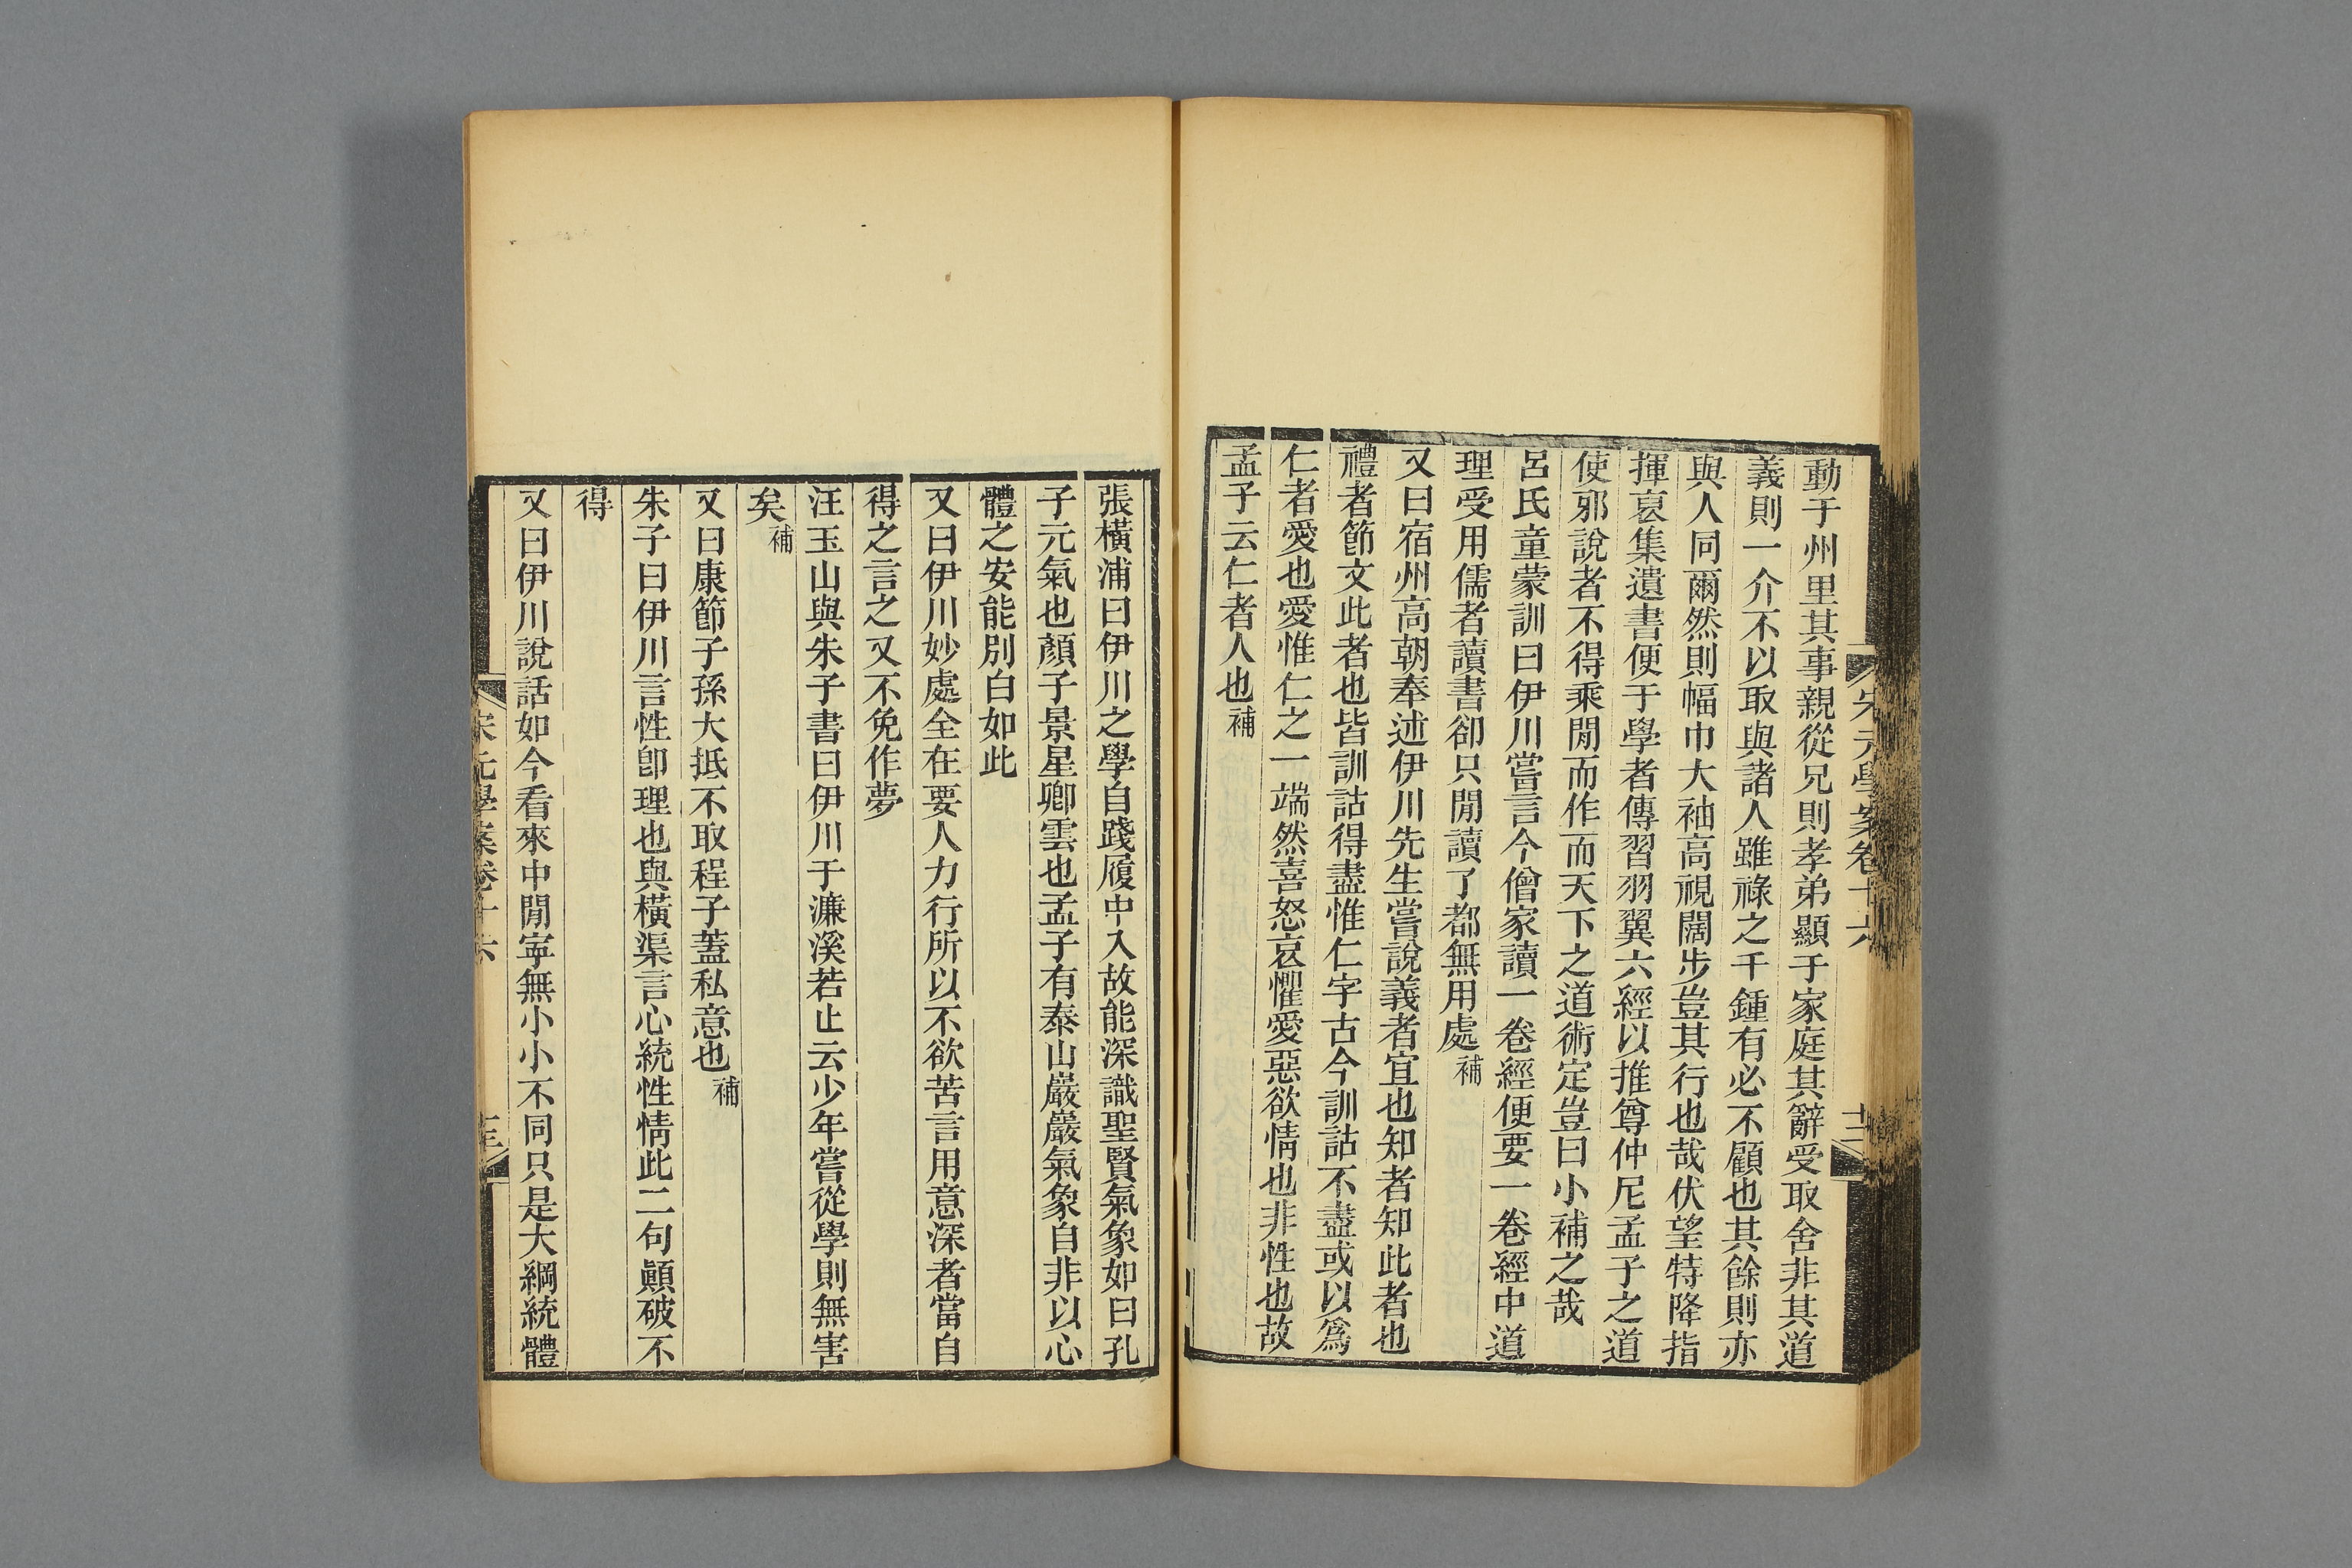 宋元學案卷十六
十二
動于州里其事親從兄則孝弟顯于家庭其辭受取舍非其道
義則一介不以取與諸人雖祿之千鍾有必不顧也其餘則亦
與人同爾然則幅巾大袖高視闊步豈其行也哉伏望特降指
揮裒集遺書便于學者傳習羽翼六經以推尊仲尼孟子之道
使邪說者不得乘閒而作而天下之道術定豈曰小補之哉
呂氏童蒙訓曰伊川嘗言今僧家讀一卷經便要一卷經中道
理受用儒者讀書卻只閒讀了都無用處補
又曰宿州高朝奉述伊川先生嘗說義者宜也知者知此者也
禮者節文此者也皆訓詁得盡惟仁字古今訓詁不盡或以爲
仁者愛也愛惟仁之一端然喜怒哀懼愛惡欲情也非性也故
孟子云仁者人也補
張橫浦曰伊川之學自踐履中入故能深識聖賢氣象如曰孔
子元氣也顏子景星卿雲也孟子有泰山巖巖氣象自非以心
體之安能別白如此
又曰伊川妙處全在要人力行所以不欲苦言用意深者當自
得之言之又不免作夢
汪玉山與朱子書曰伊川于濂溪若止云少年嘗從學則無害
矣補
又曰康節子孫大抵不取程子蓋私意也補
朱子曰伊川言性卽理也與橫渠言心統性情此二句顚破不
得
又曰伊川說話如今看來中閒寧無小小不同只是大綱統體
宋元學案卷十六
十三